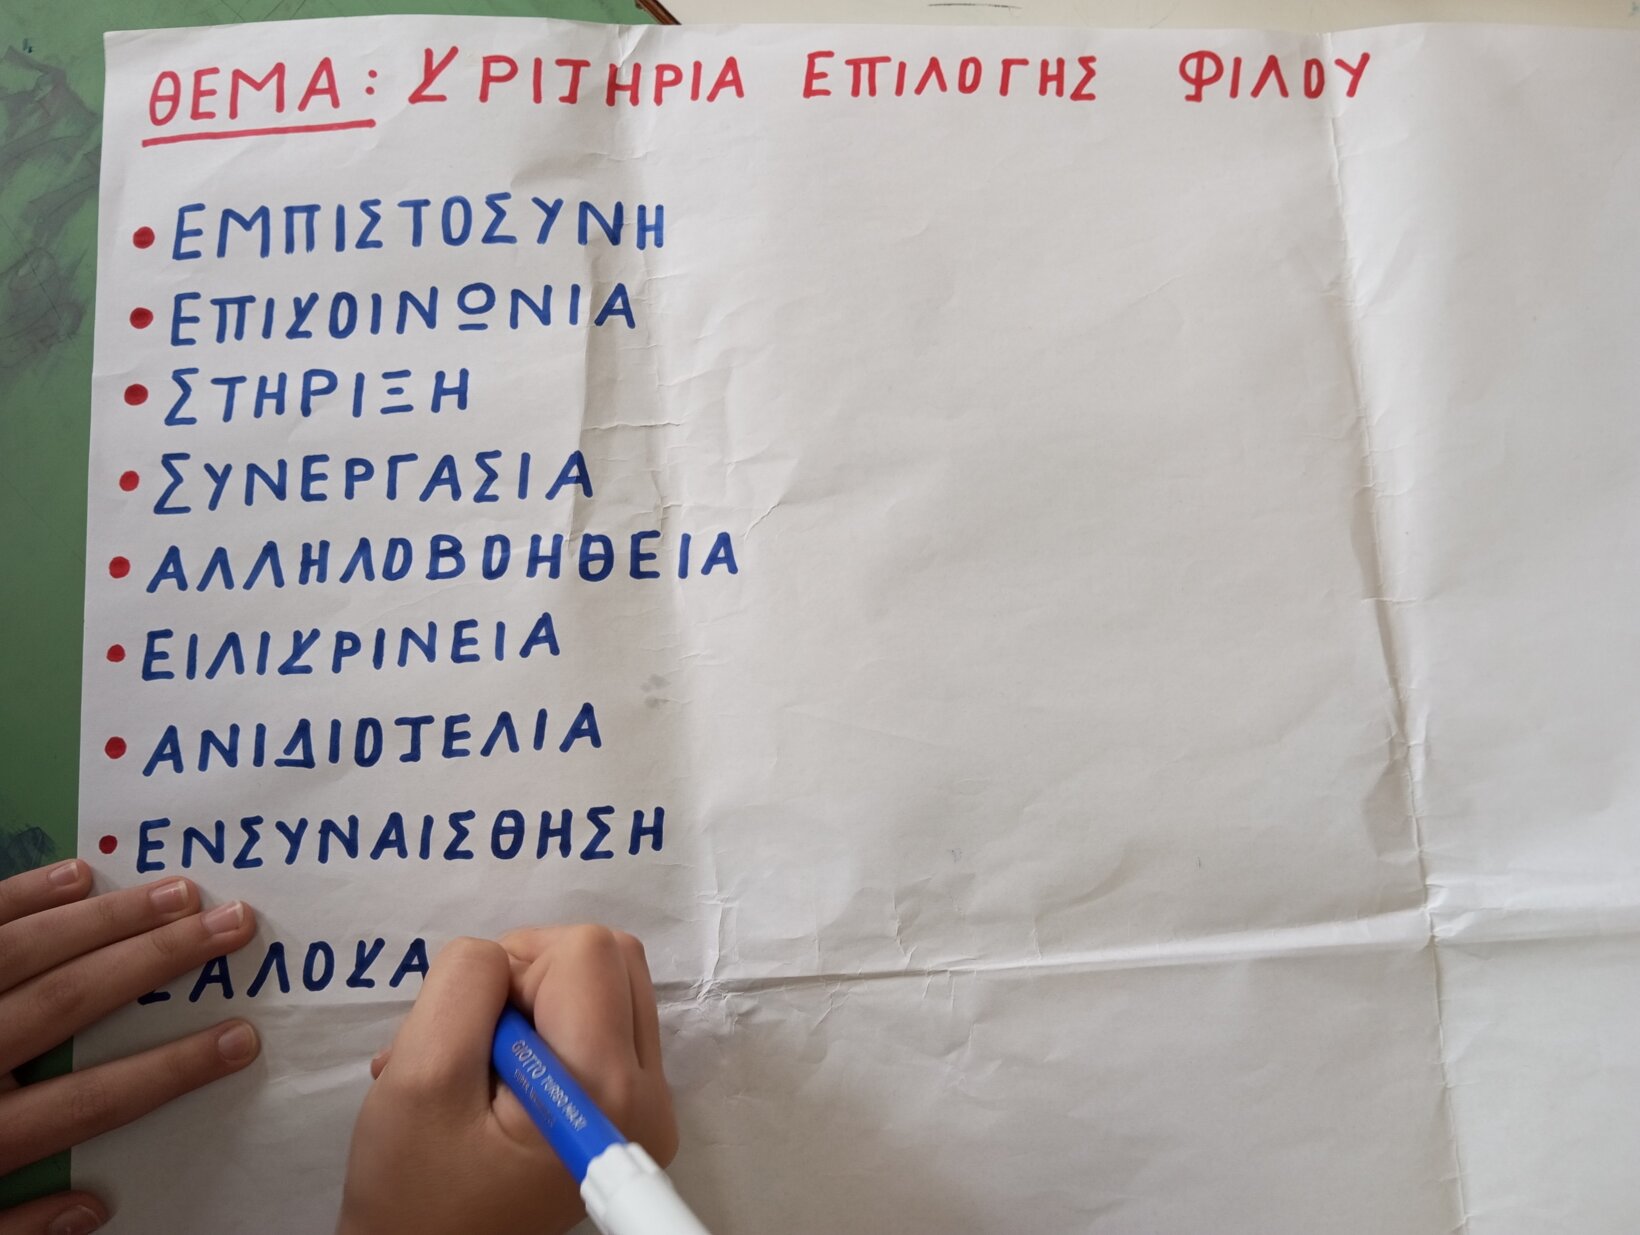 ΘΕΜΑ: ΚΡΙΤΗΡΙΑ ΕΠΙΛΟΓΗΣ ΦΙΛΟΥ
• ΕΜΠΙΣΤΟΣΥΝΗ
• ΕΠΙΚΟΙΝΩΝΙΑ
• ΣΤΗΡΙΞΗ
• ΣΥΝΕΡΓΑΣΙΑ
• ΑΛΛΗΛΟΒΟΗΘΕΙΑ
• ΕΙΛΙΚΡΙΝΕΙΑ
• ΑΝΙΔΙΟΤΕΛΙΑ
• ΕΝΣΥΝΑΙΣΘΗΣΗ
GIOTTO TURBO MAXI